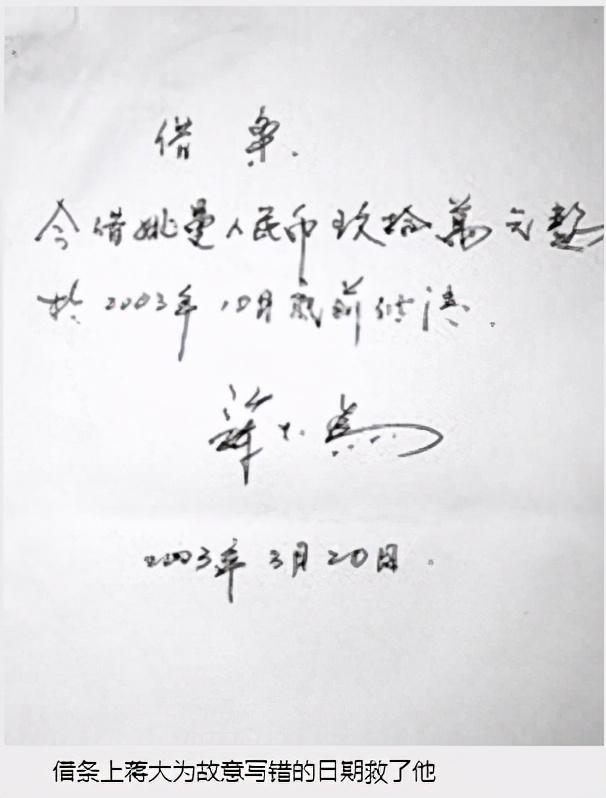 借条
今借姚曼人民币玖拾萬元整
于2003年10月底前付清.
蒋大为
2003年3月20日.
信条上蒋大为故意写错的日期救了他